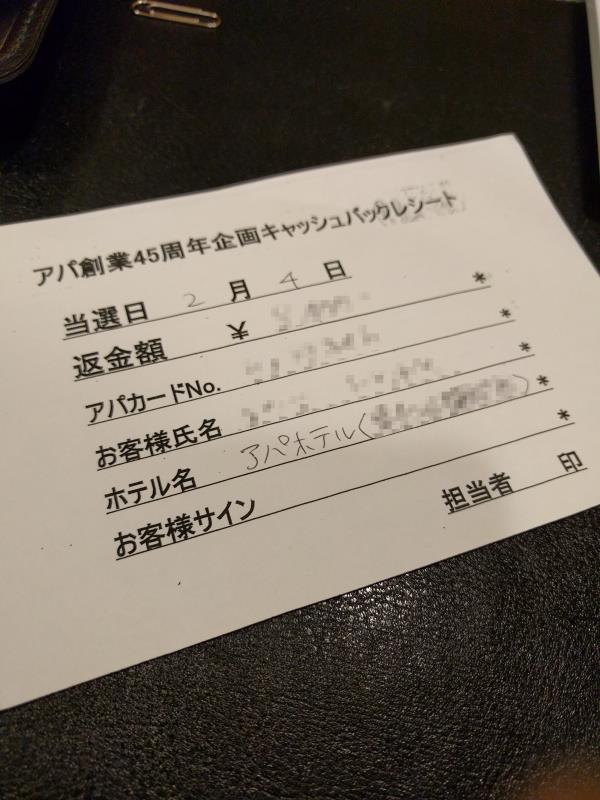 アパ創業45周年企画キャッシュバックレシート
当選日 2 月 4 日
返金額 ¥ *
アパカードNo. *
お客様氏名 *
ホテル名 アパホテル( ) *
お客様サイン *
担当者 印